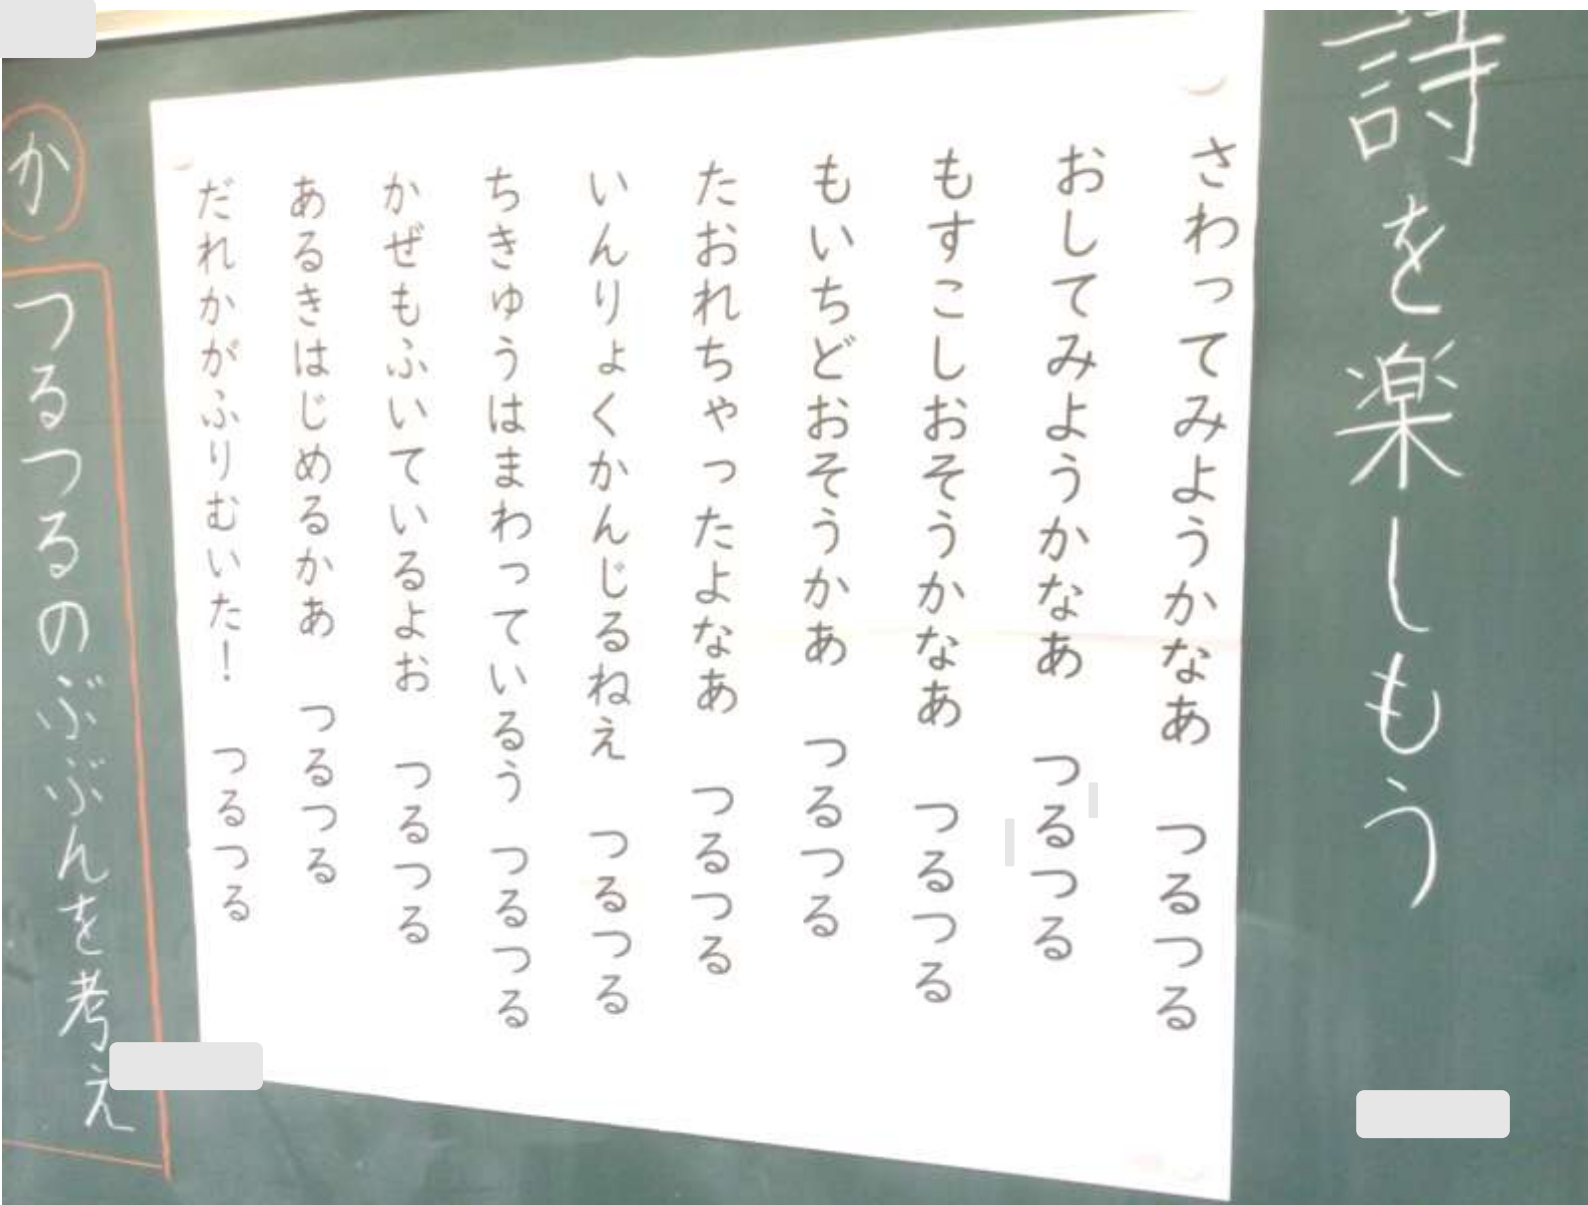 詩を楽しもう
さわってみようかなあ　つるつる
おしてみようかなあ　つるつる
もすこしおそうかなあ　つるつる
もいちどおそうかあ　つるつる
たおれちゃったよなあ　つるつる
いんりょくかんじるねえ　つるつる
ちきゅうはまわっているう　つるつる
かぜもふいているよお　つるつる
あるきはじめるかあ　つるつる
だれかがふりむいた！　つるつる
か
つるつるのぶぶんを考え